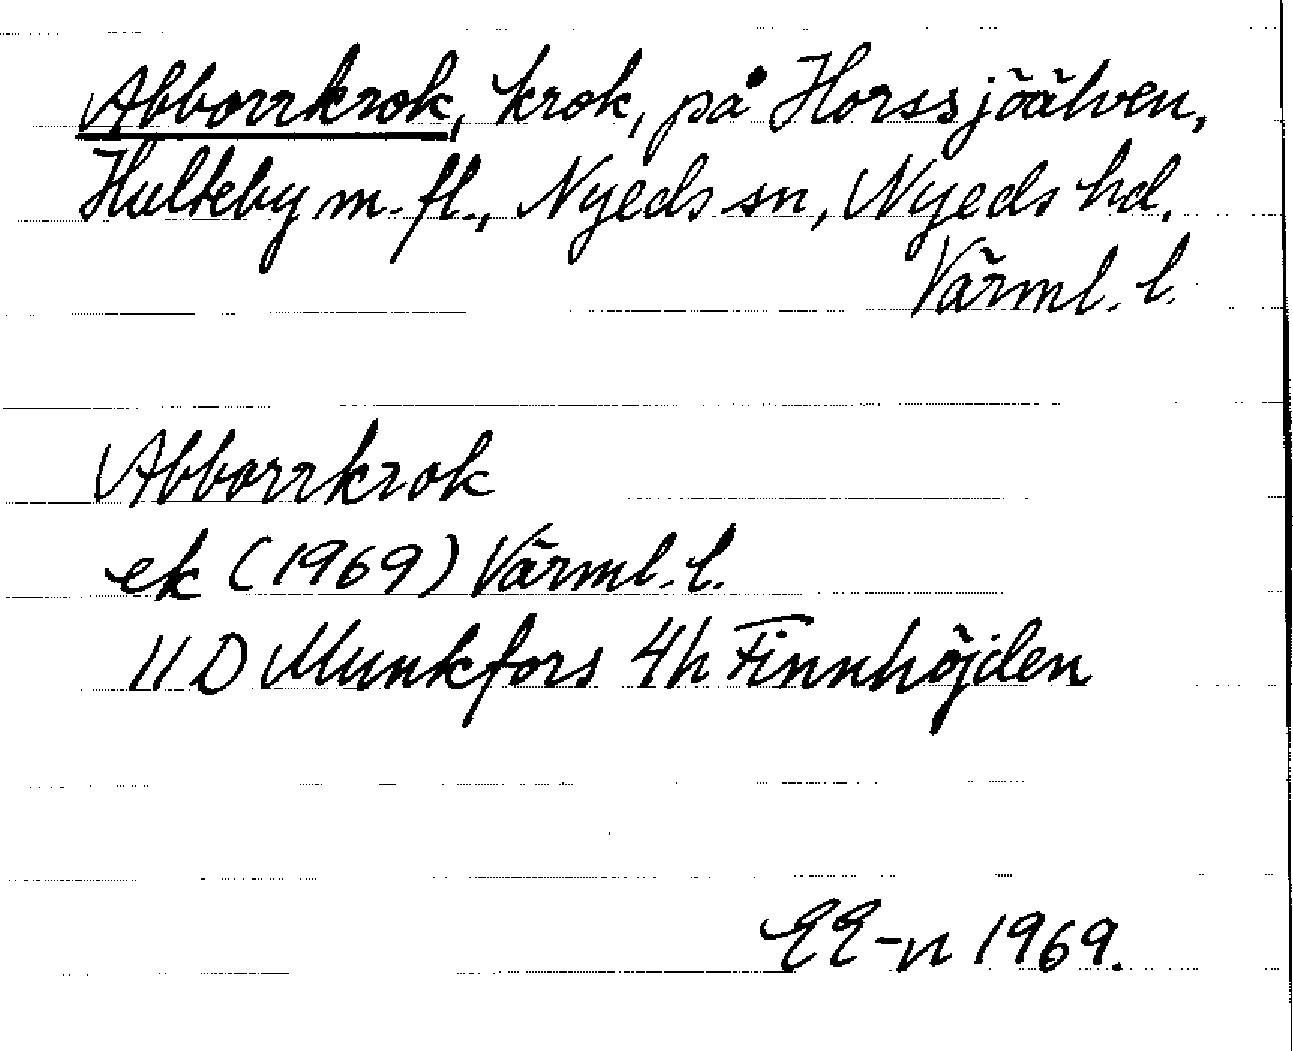 Abborrkrok, krok, på Horssjöälven,
Hulteby m.fl., Nyeds sn, Nyeds hd,
Värml. l.
Abborrkrok
ek (1969) Värml. l.
11 D Munkfors 4h Finnhöjden
EE-n 1969.